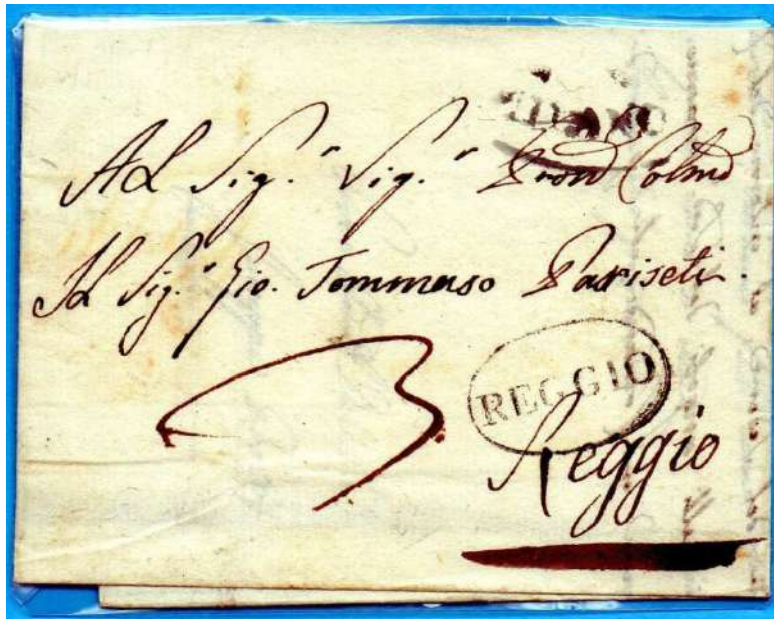 Al Sig.r Sig.r Pron Colmo
Il Sig.r Gio. Tommaso Pariseti
3
REGGIO
Reggio